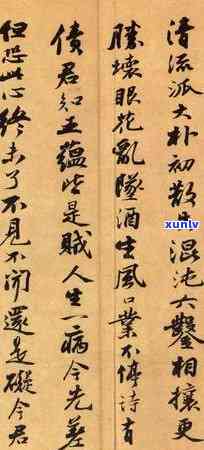 清流派大朴初散失混沌六鑿相攘更
勝壞眼花亂墜酒生風口業不停詩有
債君知五蘊皆是賊人生一病今先差
但恐此心終未了不見不聞還是礙今君
xunlv